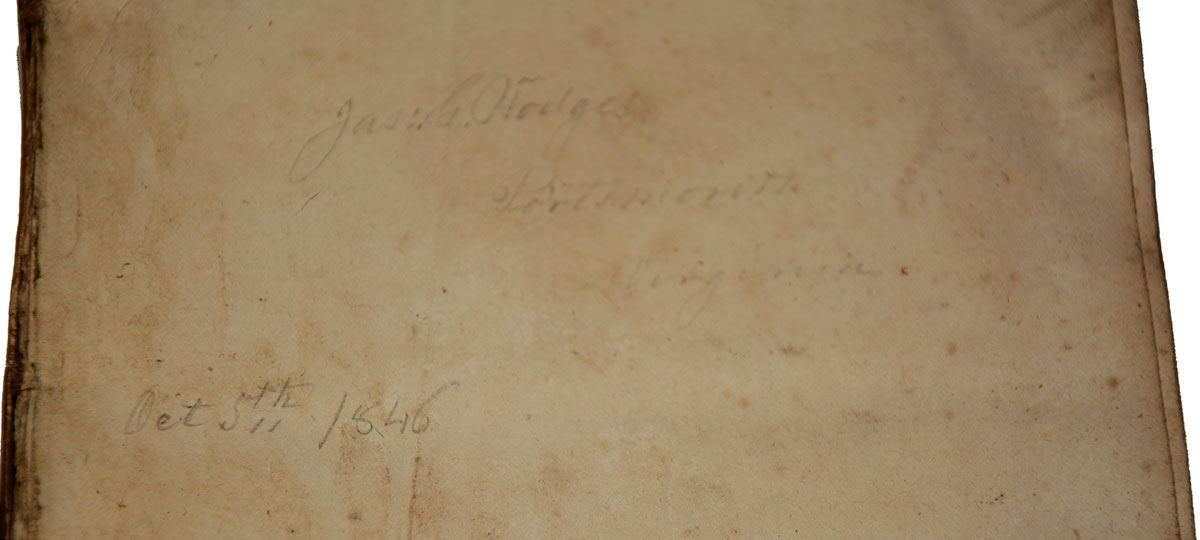 Jas: G. Hodges
Portsmouth
Virginia
Oct 5th 1846